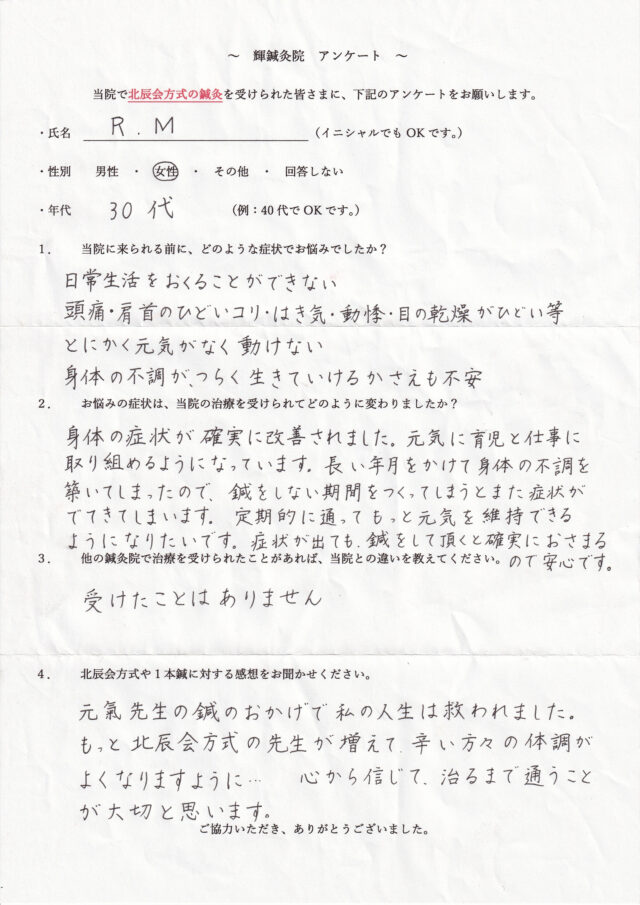 ～ 輝鍼灸院 アンケート ～
当院で北辰会方式の鍼灸を受けられた皆さまに、下記のアンケートをお願いします。
・氏名 R.M （イニシャルでもOKです。）
・性別 男性 ・ 女性 ・ その他 ・ 回答しない
・年代 30代 （例：40代でOKです。）
1. 当院に来られる前に、どのような症状でお悩みでしたか？
日常生活をおくることができない
頭痛・肩首のひどいコリ・はき気・動悸・目の乾燥がひどい等
とにかく元気がなく動けない
身体の不調が、つらく生きていけるかさえも不安
2. お悩みの症状は、当院の治療を受けられてどのように変わりましたか？
身体の症状が確実に改善されました。元気に育児と仕事に
取り組めるようになっています。長い年月をかけて身体の不調を
築いてしまったので、鍼をしない期間をつくってしまうとまた症状が
でてきてしまいます。定期的に通ってもっと元気を維持できる
ようになりたいです。症状が出ても、鍼をして頂くと確実におさまる
ので安心です。
3. 他の鍼灸院で治療を受けられたことがあれば、当院との違いを教えてください。
受けたことはありません
4. 北辰会方式や1本鍼に対する感想をお聞かせください。
元氣先生の鍼のおかげで私の人生は救われました。
もっと北辰会方式の先生が増えて、辛い方々の体調が
よくなりますように… 心から信じて、治るまで通うこと
が大切と思います。
ご協力いただき、ありがとうございました。